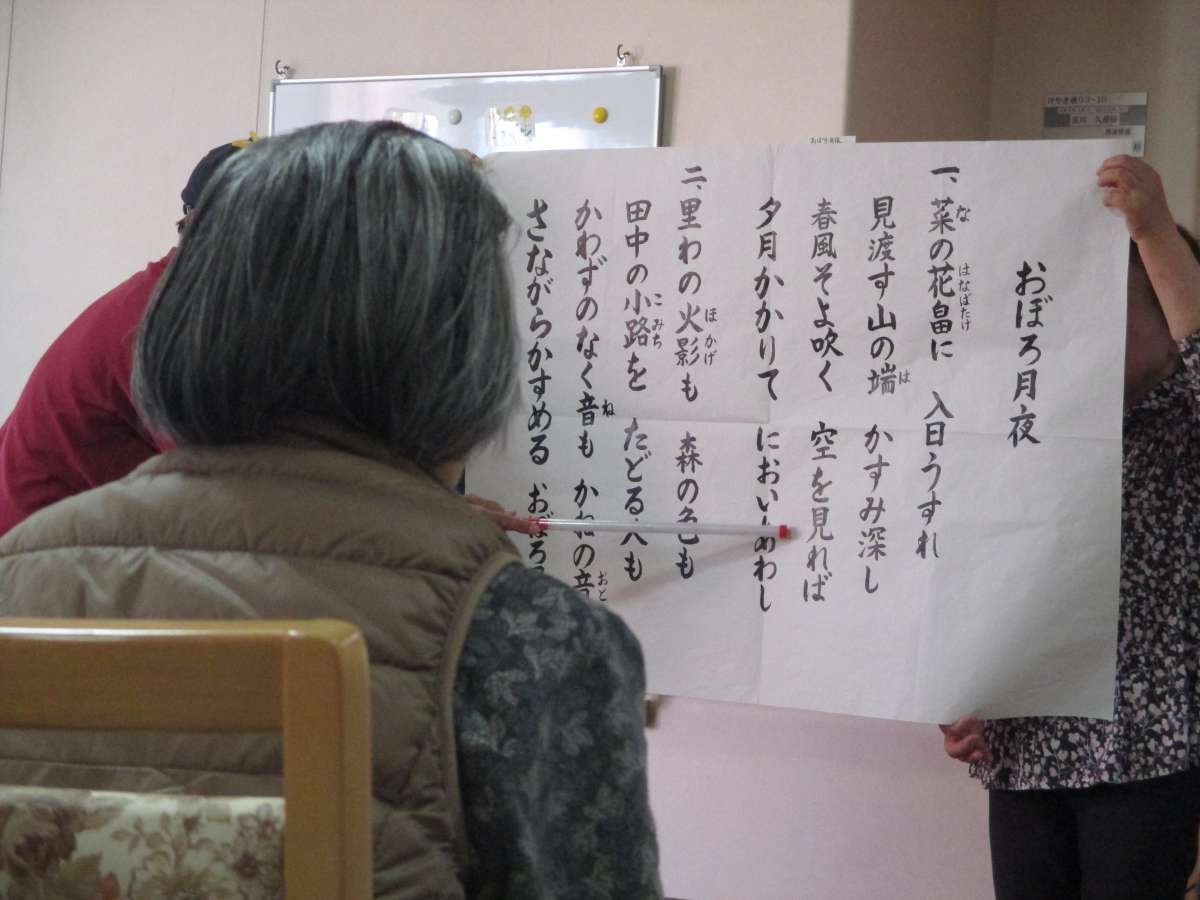 おぼろ月夜
一、菜の花畠に 入日うすれ
な
はなばたけ
見渡す山の端 かすみ深し
は
春風そよ吹く 空を見れば
夕月かかりて におい わし
二、里わの火影も 森の色も
ほかげ
田中の小路を たどる人も
こみち
かわずのなく音も かねの音
ね
おと
さながらかすめる おぼろ